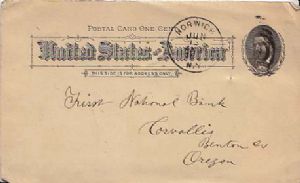 POSTAL CARD ONE CENT
United States of America
THIS SIDE IS FOR ADDRESS ONLY.
NORWICH
JUN
N.Y.
First National Bank
Corvallis
Benton Co
Oregon